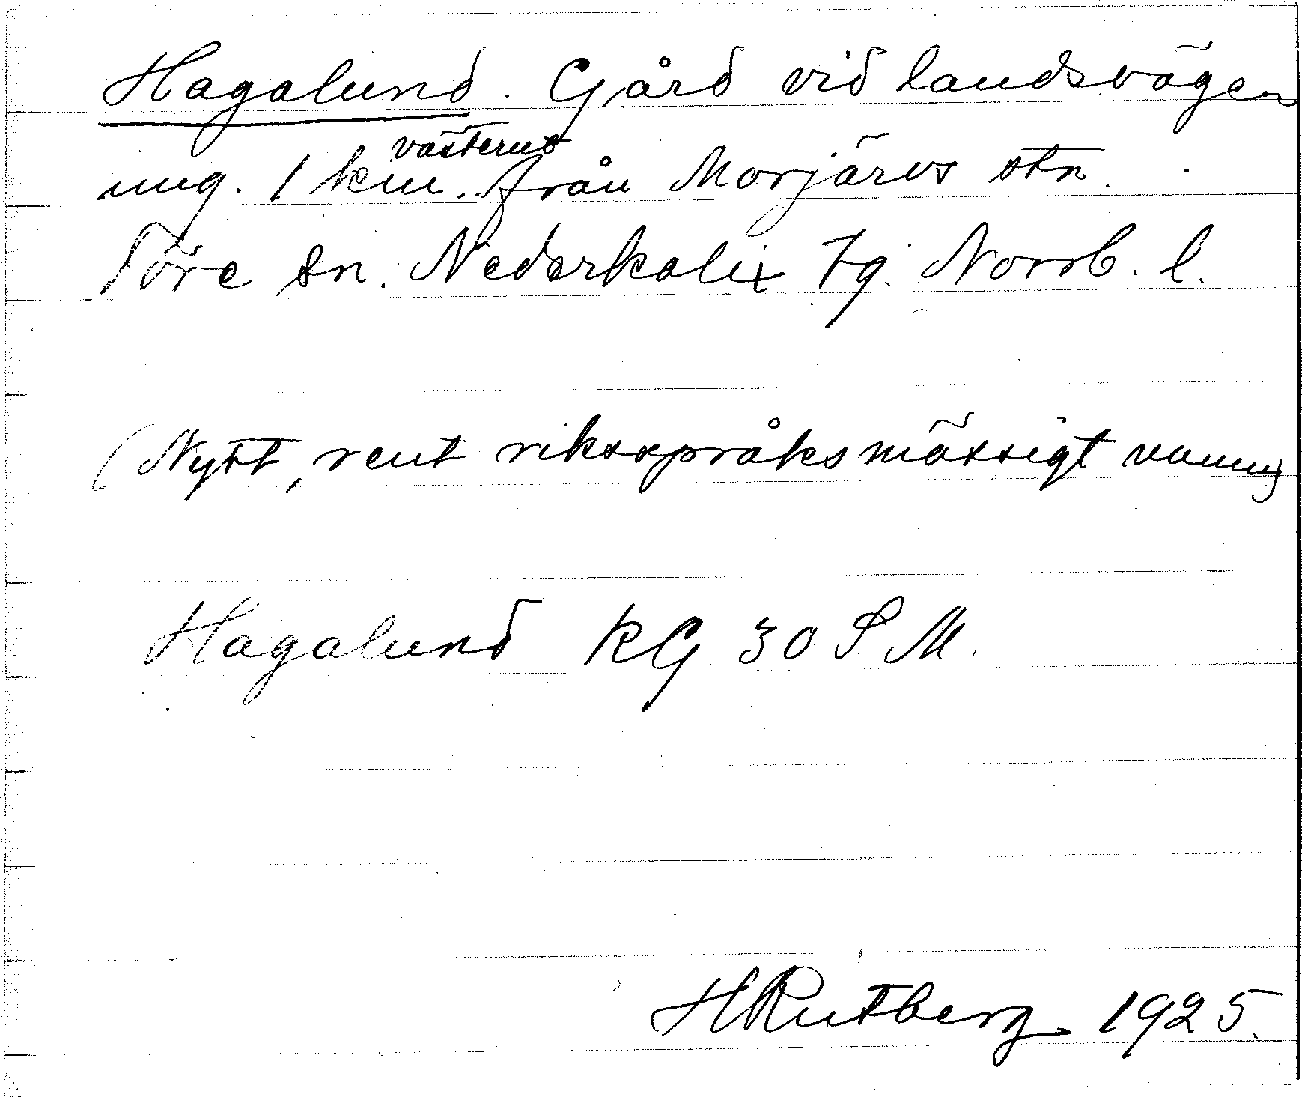 Hagalund. Gård vid landsvägen
ung. 1 km. västerut från Morjärvs stn.
Töre sn. Nederkalix tg. Norrb. l.
(Nytt, rent riksspråksmässigt namn)
Hagalund KG 30 S M.
HRutberg 1925.